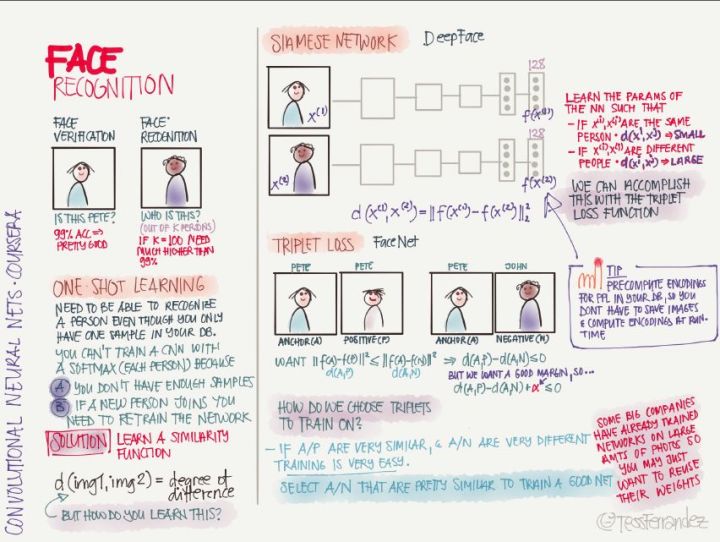 CONVOLUTIONAL NEURAL NETS · COURSERA
FACE
RECOGNITION
FACE
VERIFICATION
IS THIS PETE?
99% ACC ⇒
PRETTY GOOD
FACE
WHO IS THIS?
(OUT OF K PERSONS)
IF K=100 NEED
MUCH HIGHER THAN
99%
ONE SHOT LEARNING
NEED TO BE ABLE TO RECOGNIZE
A PERSON EVEN THOUGH YOU ONLY
HAVE ONE SAMPLE IN YOUR DB.
YOU CAN'T TRAIN A CNN WITH
A SOFTMAX (EACH PERSON) BECAUSE
A YOU DON'T HAVE ENOUGH SAMPLES
B IF A NEW PERSON JOINS YOU
NEED TO RETRAIN THE NETWORK
SOLUTION LEARN A SIMILARITY
FUNCTION
d(img1, img2) = degree of
difference
BUT HOW DO YOU LEARN THIS?
SIAMESE NETWORK DeepFace
x⁽¹⁾
128
f(x⁽¹⁾)
x⁽²⁾
128
f(x⁽²⁾)
d(x⁽¹⁾, x⁽²⁾) = ||f(x⁽¹⁾) - f(x⁽²⁾)||²₂
LEARN THE PARAMS OF
THE NN SUCH THAT
- IF x⁽ⁱ⁾, x⁽ʲ⁾ ARE THE SAME
PERSON · d(xⁱ, xʲ) ⇒ SMALL
- IF x⁽ⁱ⁾, x⁽ʲ⁾ ARE DIFFERENT
PEOPLE · d(xⁱ, xʲ) ⇒ LARGE
WE CAN ACCOMPLISH
THIS WITH THE TRIPLET
LOSS FUNCTION
TIP
PRECOMPUTE ENCODINGS
FOR PPL IN YOUR DB, SO YOU
DONT HAVE TO SAVE IMAGES
& COMPUTE ENCODINGS AT RUN-
TIME
TRIPLET LOSS FaceNet
PETE PETE PETE JOHN
ANCHOR (A) POSITIVE (P) ANCHOR (A) NEGATIVE (N)
WANT ||f(A)-f(P)||² ≤ ||f(A)-f(N)||² ⇒ d(A,P)-d(A,N) ≤ 0
d(A,P) d(A,N) BUT WE WANT A GOOD MARGIN, SO...
d(A,P)-d(A,N)+α ≤ 0
HOW DO WE CHOOSE TRIPLETS
TO TRAIN ON?
- IF A/P ARE VERY SIMILAR, & A/N ARE VERY DIFFERENT
TRAINING IS VERY EASY.
SELECT A/N THAT ARE PRETTY SIMILAR TO TRAIN A GOOD NET
SOME BIG COMPANIES
HAVE ALREADY TRAINED
NETWORKS ON LARGE
AMTS OF PHOTOS SO
YOU MAY JUST
WANT TO REUSE
THEIR WEIGHTS
@TessFerrandez